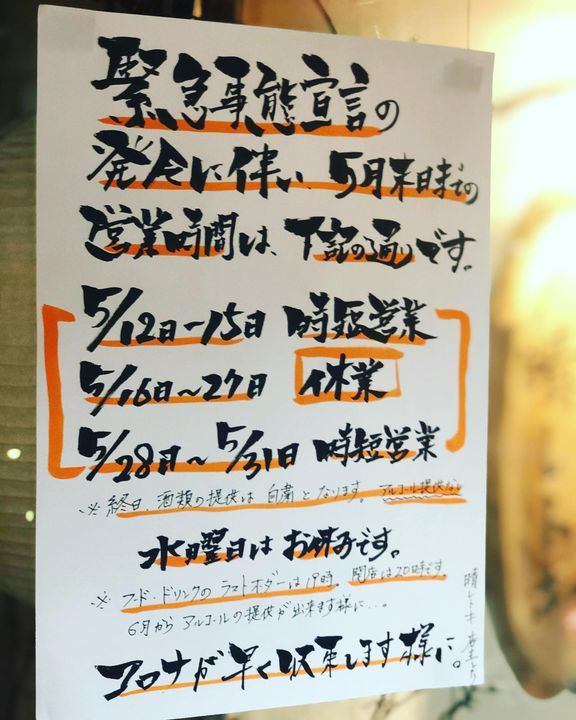 緊急事態宣言の
発令に伴い、5月末日までの
営業時間は、下記の通りです。
5/12日-15日 時短営業
5/16日〜27日 休業
5/28日〜5/31日 時短営業
※終日、酒類の提供は自粛となります。アルコール提供なし
水曜日はお休みです。
※フード・ドリンクのラストオーダーは19時。閉店は20時です。
6月からアルコールの提供が出来ます様に…。
コロナが早く収束します様に。